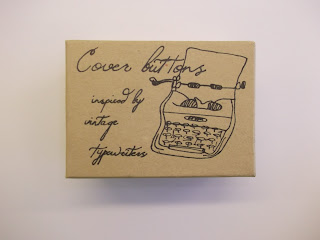 Cover buttons
inspired by
vintage
typewriters